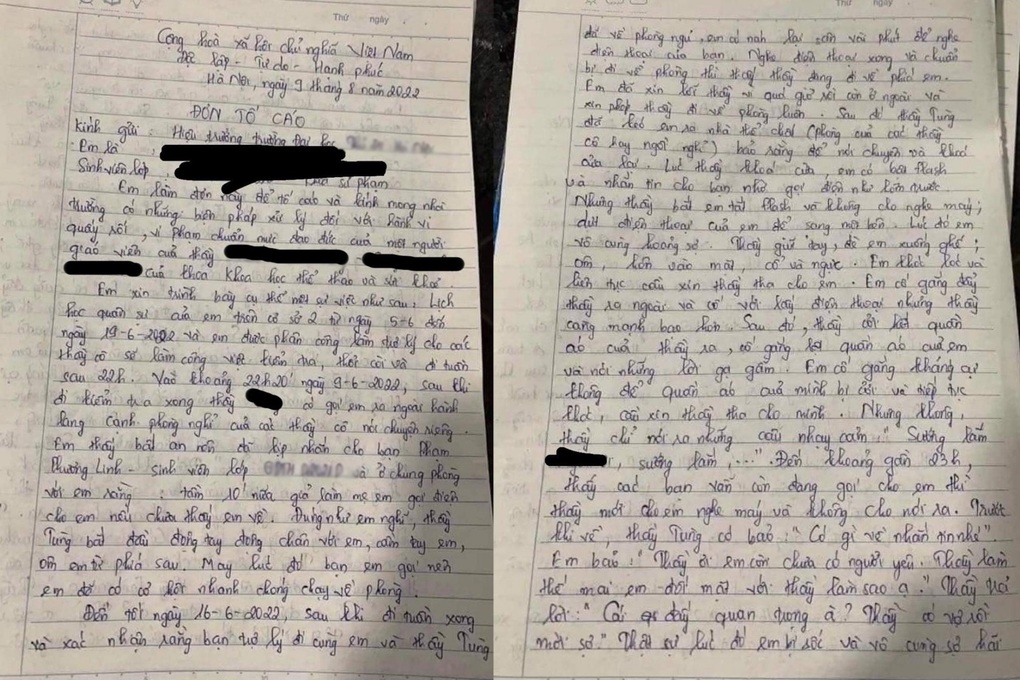 Thứ ngày
Cộng hoà xã hội chủ nghĩa Việt Nam
Độc lập - Tự do - Hạnh phúc
Hà Nội, ngày 9 tháng 8 năm 2022
ĐƠN TỐ CÁO
Kính gửi : Hiệu trưởng trường Đại học
Em là :
Sinh viên lớp : sư phạm
Em làm đơn này để tố cáo và kính mong nhà
trường có những biện pháp xử lý đối với hành vi
quấy rối, vi phạm chuẩn mực đạo đức của một người
giáo viên của thầy
của khoa Khoa học thể thao và sức khoẻ.
Em xin trình bày cụ thể mọi sự việc như sau : Lịch
học quân sự của em trên cơ sở 2 từ ngày 5-6 đến
ngày 19-6-2022 và em được phân công làm tự lý cho các
thầy cô sẽ làm công việc kiểm tra, thổi còi và đi tuần
sau 22h. Vào khoảng 22h20' ngày 9-6-2022, sau khi
đi kiểm tra xong thầy có gọi em ra ngoài hành
lang cạnh phòng nghỉ của các thầy cô nói chuyện riêng.
Em thấy bất an nên đã kịp nhắn cho bạn Phạm
Phương Linh - sinh viên lớp và ở chung phòng
với em rằng : tầm 10' nữa giả làm mẹ em gọi điện
cho em nếu chưa thấy em về. Đúng như em nghĩ, thầy
Tùng bắt đầu động tay động chân với em, cầm tay em,
ôm em từ phía sau. May lúc đó bạn em gọi nên
em đã có cớ kết nhanh chóng chạy về phòng.
Đến tối ngày 16-6-2022, sau khi đi tuần xong
và xác nhận rằng bạn tự lý đi cùng em và thầy Tùng
Thứ ngày
đã về phòng ngủ, em có nán lại sân vài phút để nghe
điện thoại của bạn. Nghe điện thoại xong và chuẩn
bị đi về phòng thì thấy thầy đang đi về phía em.
Em đã xin lỗi thầy vì quá giờ rồi còn ở ngoài và
xin phép thầy đi về phòng luôn. Sau đó thầy Tùng
đã kéo em ra nhà thể chất (phòng của các thầy
cô hay ngồi nghỉ) bảo rằng để nói chuyện và khoá
cửa lại. Lúc thầy khoá cửa, em có bật flash
và nhắn tin cho bạn nhờ gọi điện như lần trước.
Nhưng thầy bắt em tắt flash và không cho nghe máy ;
dứt điện thoại của em để sang một bên. Lúc đó em
vô cùng hoảng sợ. Thầy giữ tay, đè em xuống ghế ;
ôm, hôn vào mặt, cổ và ngực. Em khóc lóc và
liên tục cầu xin thầy tha cho em. Em cố gắng đẩy
thầy ra ngoài và cố với lấy điện thoại nhưng thầy
càng mạnh bạo hơn. Sau đó, thầy cởi hết quần
áo của thầy ra, cố gắng kéo quần áo của em
và nói những lời gạ gẫm. Em cố gắng kháng cự
không để quần áo của mình bị cởi và tiếp tục
khóc, cầu xin thầy tha cho mình. Nhưng không,
thầy chỉ nói ra những câu nhạy cảm : " Sướng lắm
, sướng lắm, ...". Đến khoảng gần 23h,
thấy các bạn vẫn còn đang gọi cho em thì
thầy mới cho em nghe máy và không cho nói ra. Trước
khi về, thầy Tùng có bảo : " Có gì về nhắn tin nhé ".
Em bảo : " Thầy ơi em còn chưa có người yêu. Thầy làm
thế mai em đối mặt với thầy làm sao ạ. " Thầy trả
lời : " Cái đấy quan trọng à ? Thầy có vợ rồi
mới sợ. " Thật sự lúc đó em bị sốc và vô cùng sợ hãi